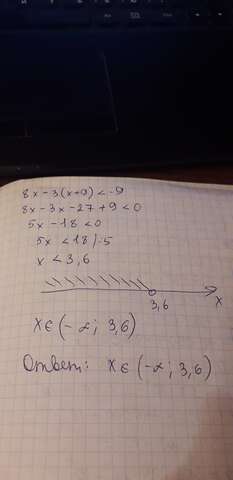 8x-3(x+9)<-9
8x-3x-27+9<0
5x-18<0
5x<18/:5
x<3,6
3,6
x
x∈(-∞; 3,6)
Ответ: x∈(-∞; 3,6)